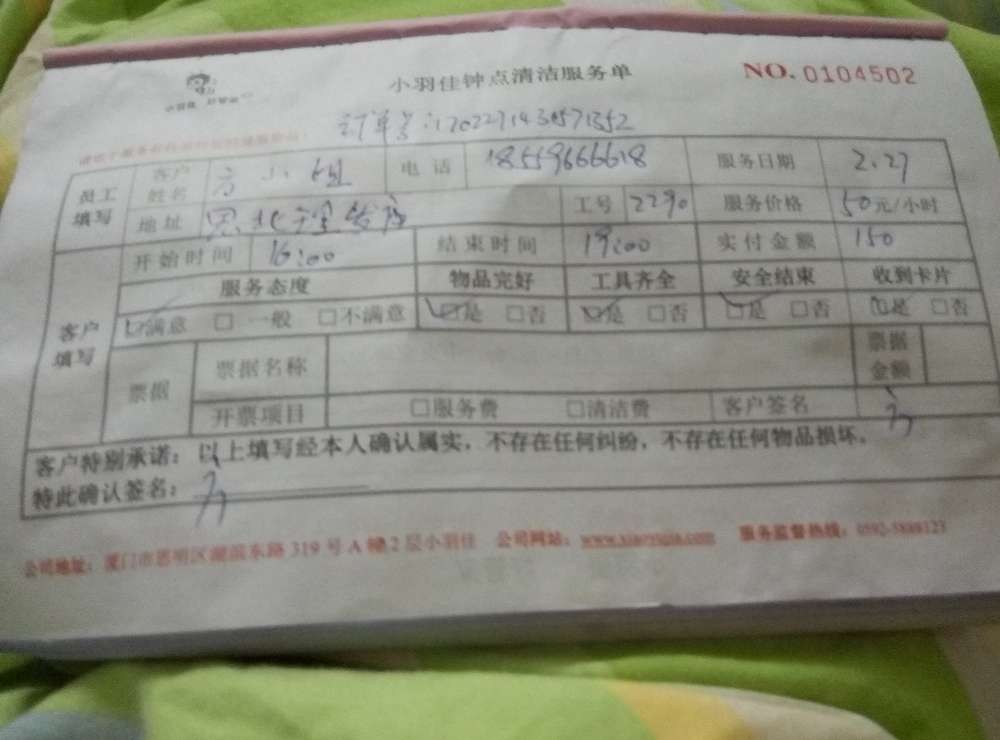 小羽佳钟点清洁服务单
NO. 0104502
订单号:
员工填写 客户姓名 高小姐 电话 18559666618 服务日期 2.27
地址 思北 工号 2290 服务价格 50元/小时
客户填写 开始时间 16:00 结束时间 19:00 实付金额 150
服务态度 物品完好 工具齐全 安全结束 收到卡片
☑满意 □一般 □不满意 ☑是 □否 ☑是 □否 ☑是 □否 ☑是 □否
票据 票据名称 票据金额
开票项目 □服务费 □清洁费 客户签名
客户特别承诺：以上填写经本人确认属实，不存在任何纠纷，不存在任何物品损坏。
特此确认签名：
公司地址：厦门市思明区湖滨东路319号A幢2层小羽佳 公司网站：www.xiaoyujia.com 服务监督热线：0592-5888123